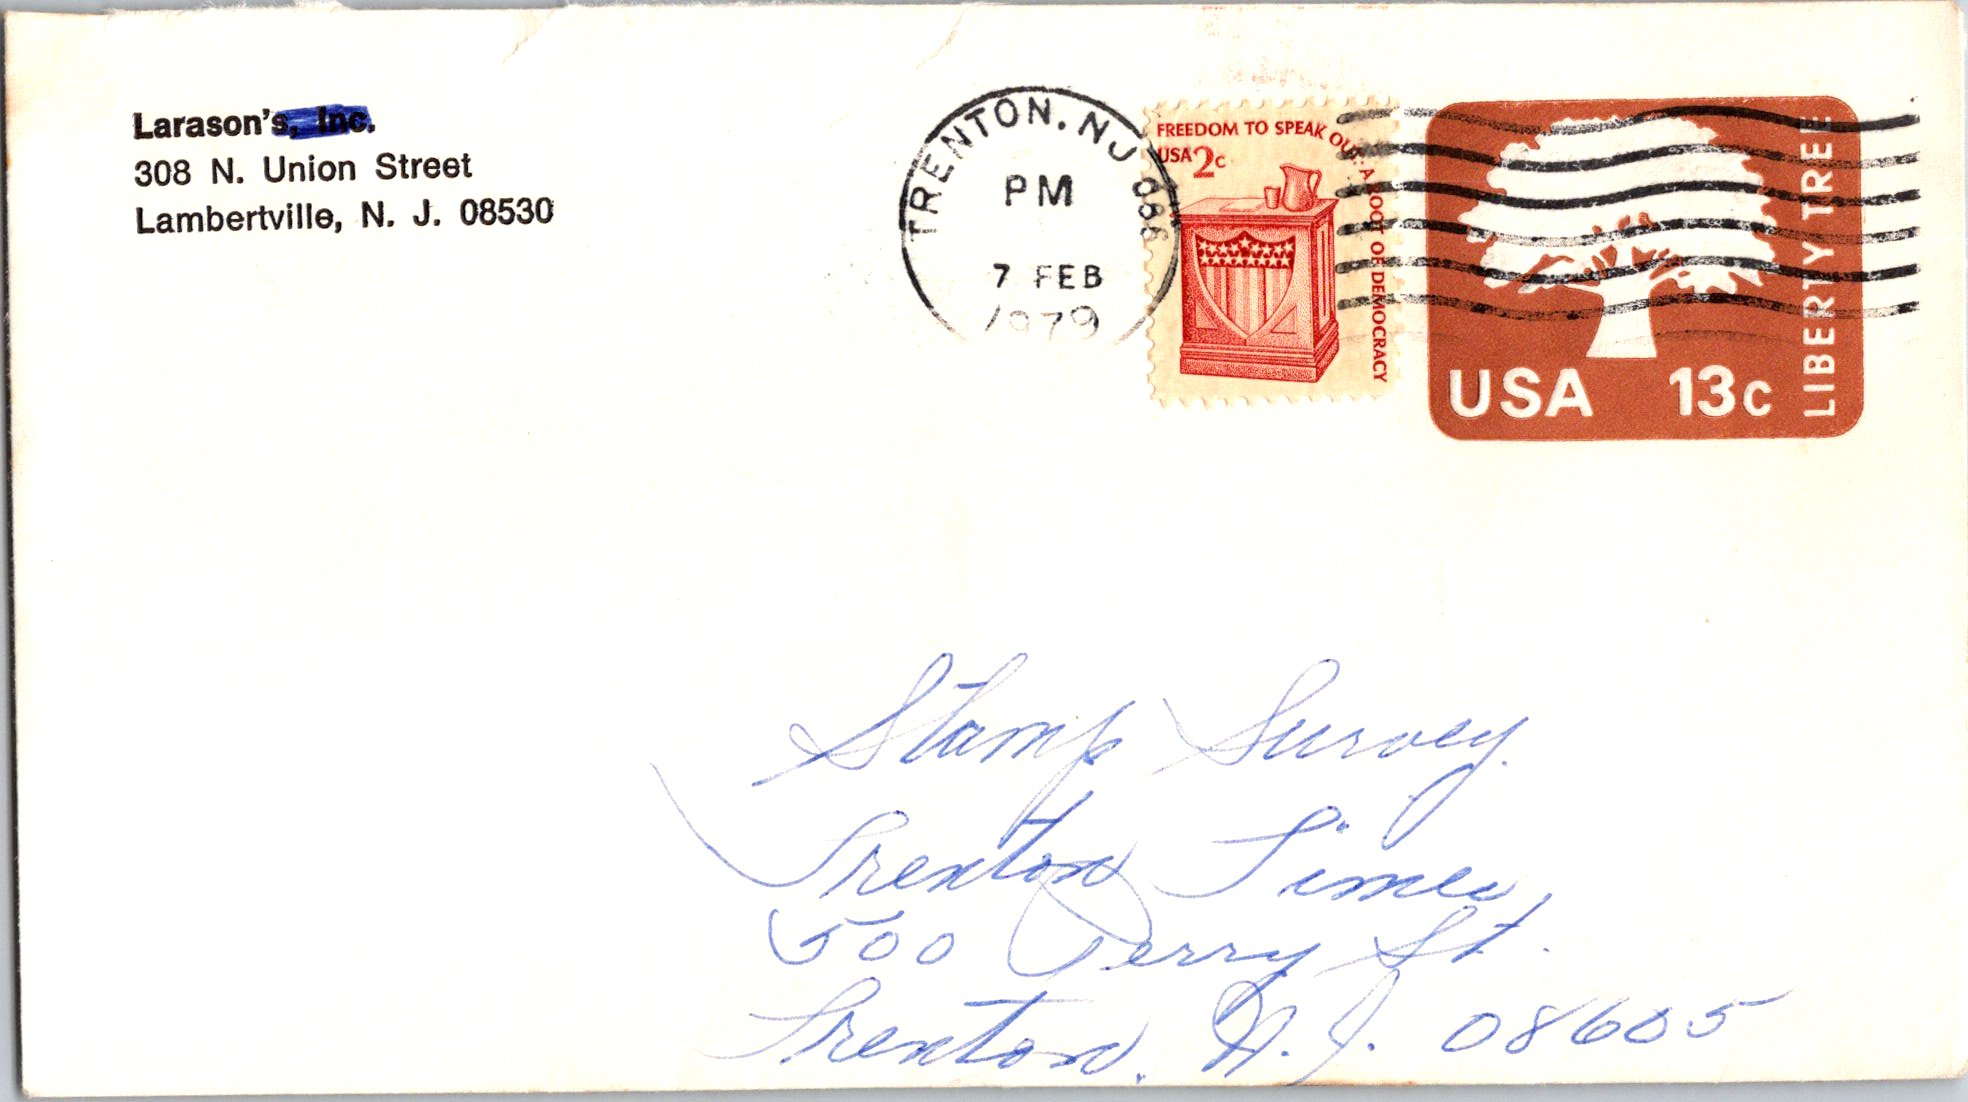 Larason's, Inc.
308 N. Union Street
Lambertville, N. J. 08530
TRENTON. NJ 086
PM
7 FEB
1979
FREEDOM TO SPEAK OUT: A ROOT OF DEMOCRACY
USA 2c
LIBERTY TREE
USA 13c
Stamp Survey
Trenton Times,
500 Perry St.
Trenton, N.J. 08605